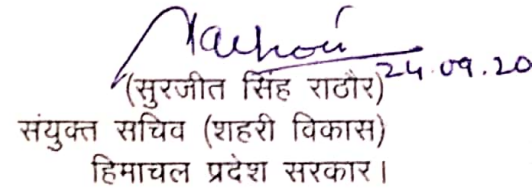 24.09.20
(सुरजीत सिंह राठौर)
संयुक्त सचिव (शहरी विकास)
हिमाचल प्रदेश सरकार।